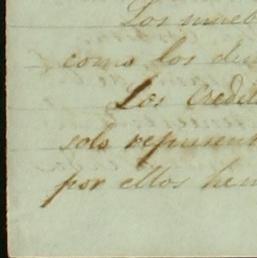 Los mueb
como los du
Los Credit
solo represent
por ellos hem